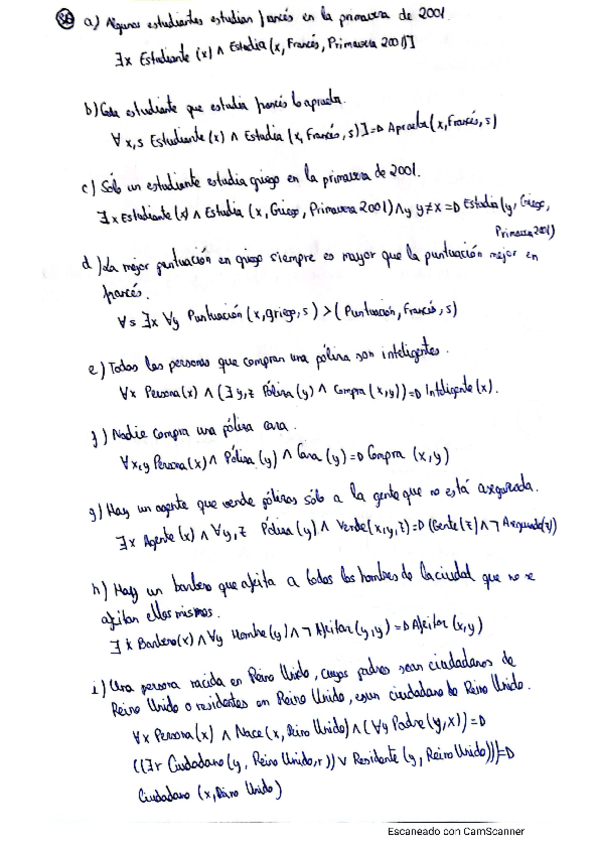 a) Algunos estudiantes estudian francés en la primavera de 2001.
∃x Estudiante (x) ∧ Estudia (x, Francés, Primavera 2001)]
b) Cada estudiante que estudia francés lo aprueba.
∀x,s Estudiante(x) ∧ Estudia (x, Francés, s)] => Aprueba(x, Francés, s)
c) Sólo un estudiante estudia griego en la primavera de 2001.
∃x Estudiante (x) ∧ Estudia (x, Griego, Primavera 2001) ∧ y y≠x => Estudia (y, Griego,
Primavera 2001)
d) La mejor puntuación en griego siempre es mayor que la puntuación mejor en
francés.
∀s ∃x ∀y Puntuación (x, griego, s) > (Puntuación, Francés, s)
e) Todas las personas que compran una póliza son inteligentes.
∀x Persona(x) ∧ (∃y,z Póliza (y) ∧ Compra (x,y)) => Inteligente (x).
f) Nadie compra una póliza cara.
∀x,y Persona(x) ∧ Póliza (y) ∧ Cara (y) => Compra (x, y)
g) Hay un agente que vende pólizas sólo a la gente que no está asegurada.
∃x Agente (x) ∧ ∀y,z Póliza (y) ∧ Vende(x,y,z) => (Gente (z) ∧ ¬ Asegurado(z))
h) Hay un barbero que afeita a todos los hombres de la ciudad que no se
afeitan ellos mismos.
∃x Barbero(x) ∧ ∀y Hombre (y) ∧ ¬ Afeitar (y,y) => Afeitar (x,y)
i) Una persona nacida en Reino Unido, cuyos padres sean ciudadanos de
Reino Unido o residentes en Reino Unido, es un ciudadano de Reino Unido.
∀x Persona(x) ∧ Nace (x, Reino Unido) ∧ (∀y Padre (y,x)) =>
((∃r Ciudadano (y, Reino Unido, r)) ∨ Residente (y, Reino Unido))) =>
Ciudadano (x, Reino Unido)
Escaneado con CamScanner